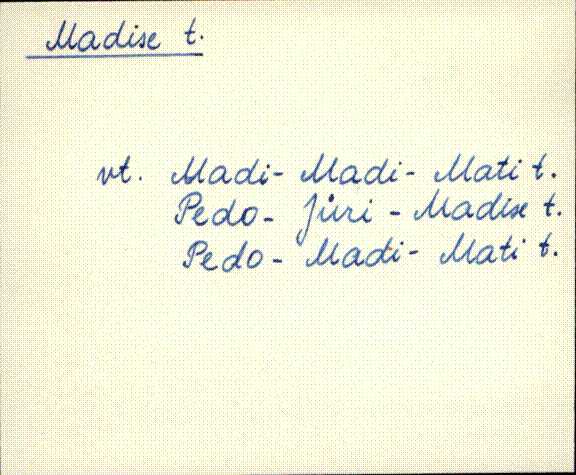 Madise t.
vt. Madi- Madi- Mati t.
Pedo- Jüri - Madise t.
Pedo- Madi- Mati t.